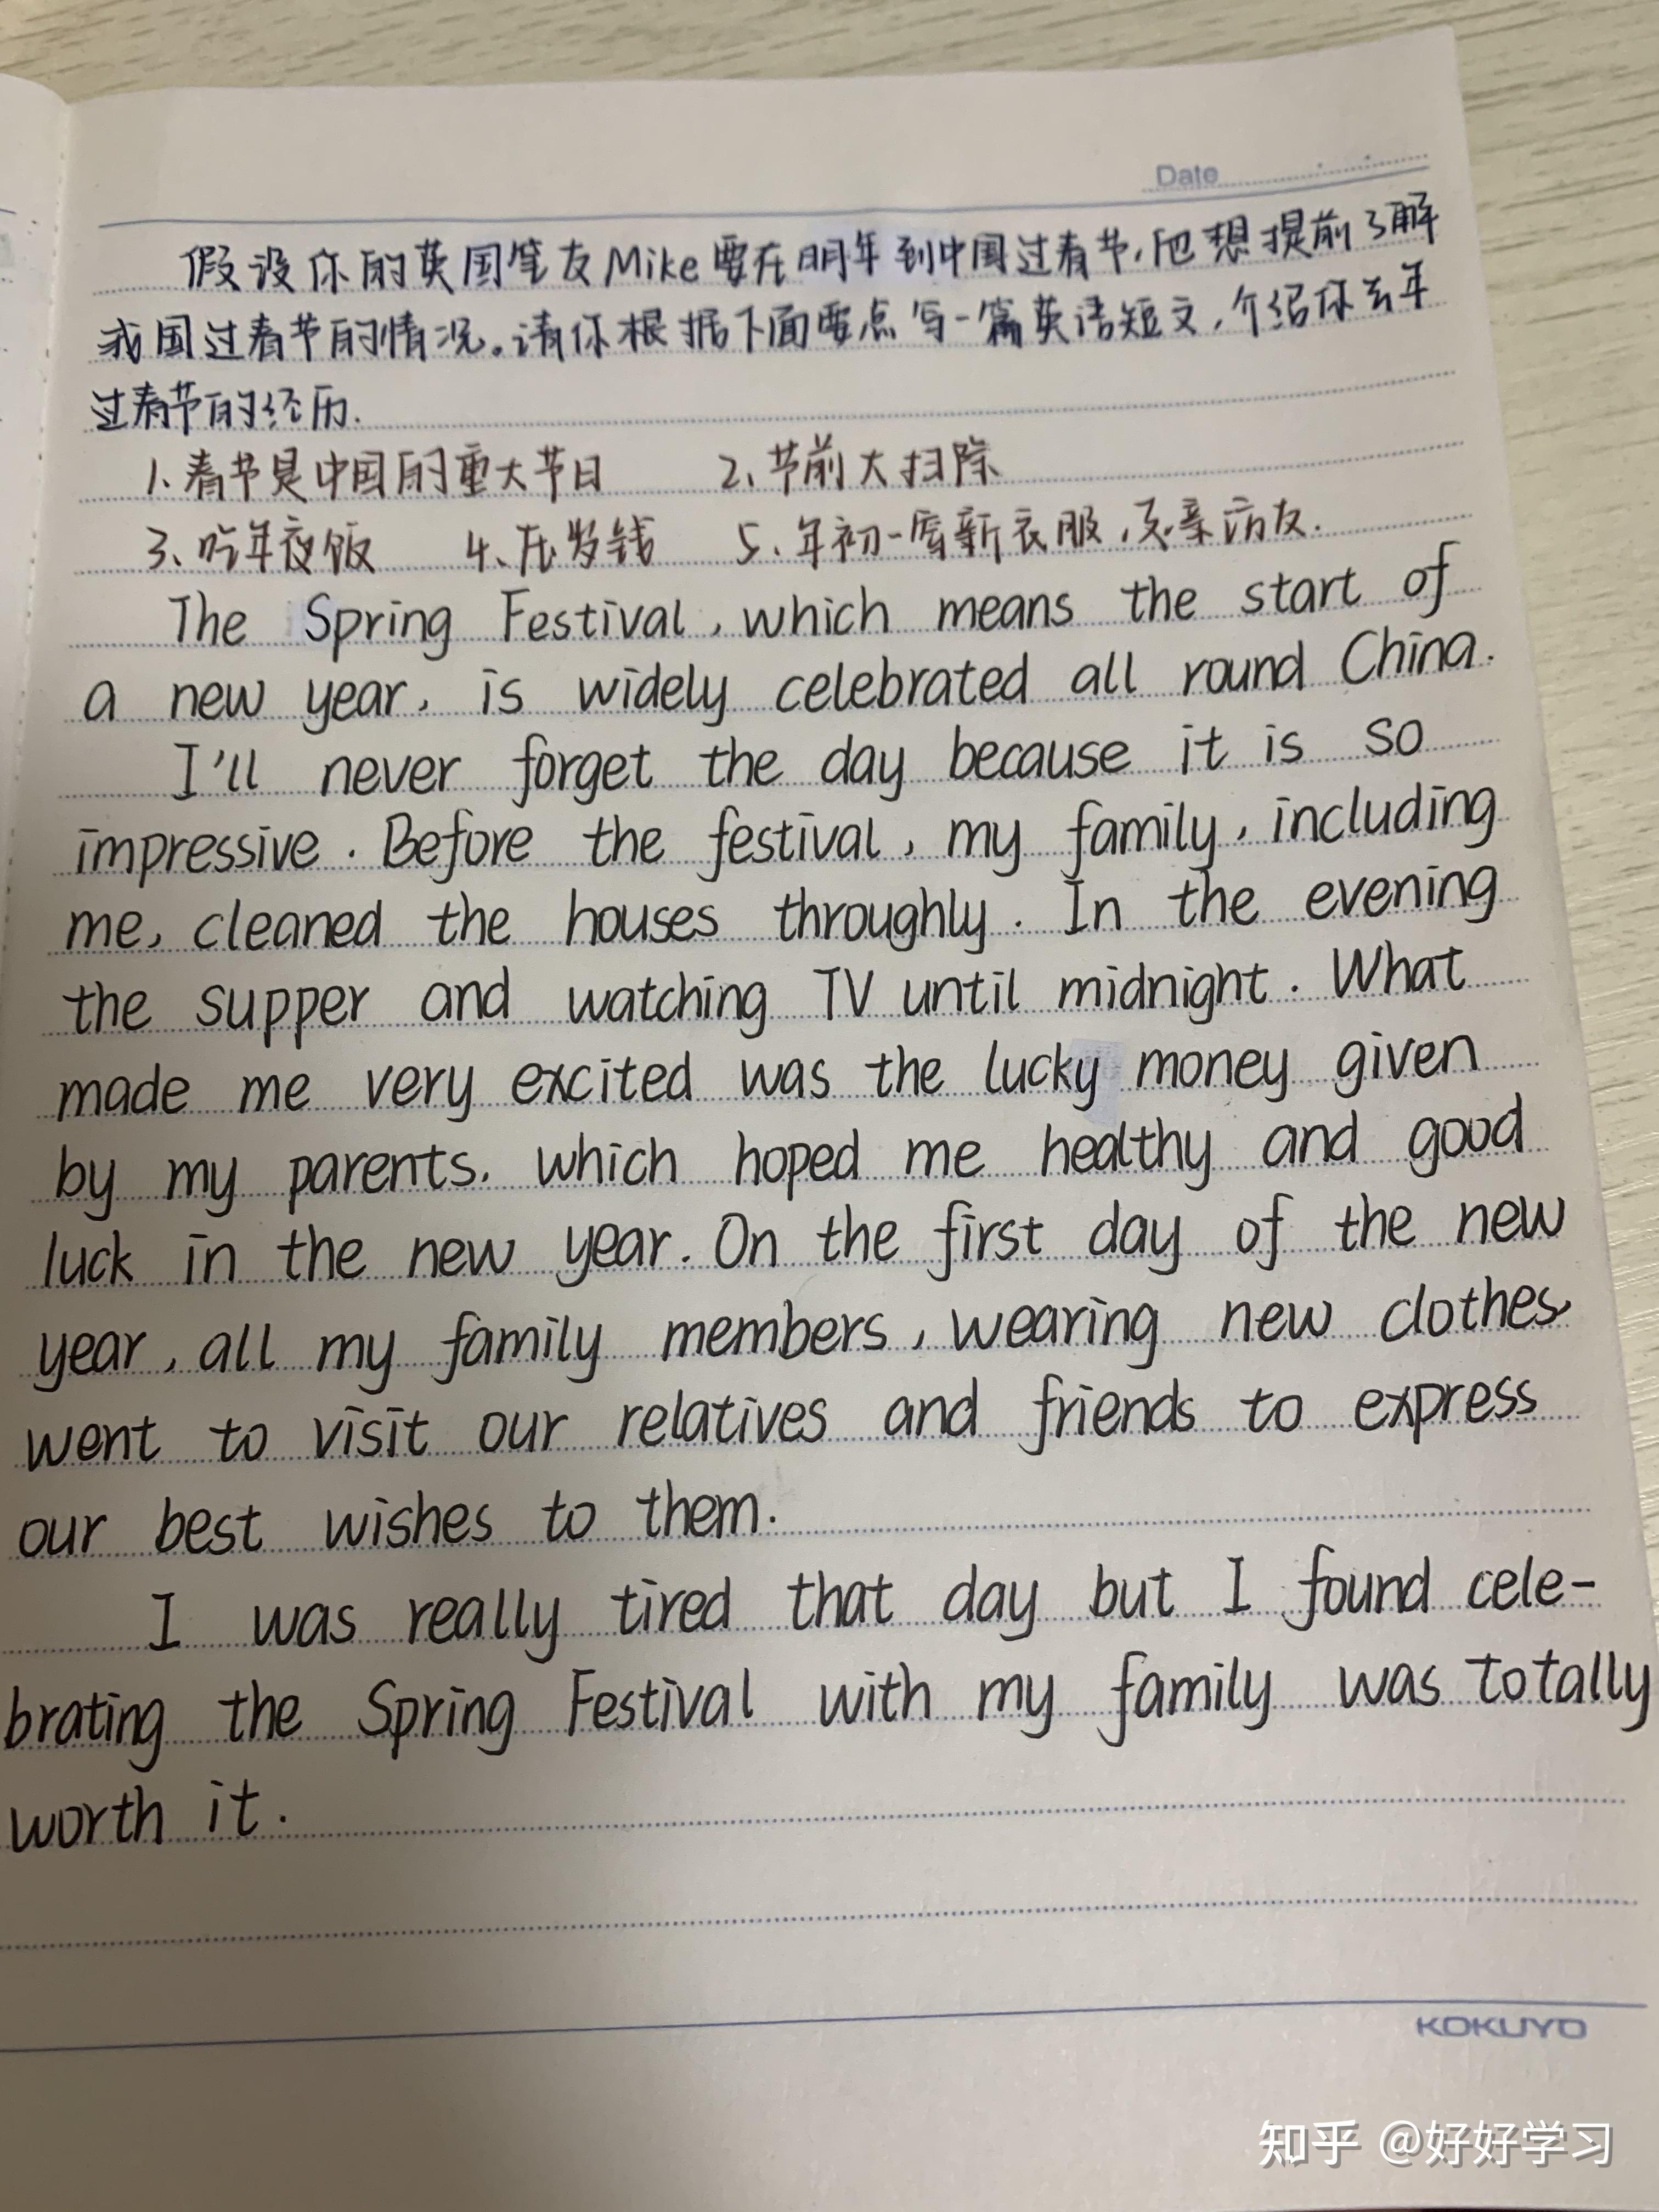 Date
假设你的英国笔友Mike要在明年到中国过春节,他想提前了解
我国过春节的情况。请你根据下面要点写一篇英语短文,介绍你去年
过春节的经历.
1.春节是中国的重大节日 2、节前大扫除
3、吃年夜饭 4、压岁钱 5、年初一穿新衣服,走亲访友.
The Spring Festival, which means the start of
a new year, is widely celebrated all round China.
I'll never forget the day because it is so
impressive. Before the festival, my family, including
me, cleaned the houses throughly. In the evening
the supper and watching TV until midnight. What
made me very excited was the lucky money given
by my parents. which hoped me healthy and good
luck in the new year. On the first day of the new
year, all my family members, wearing new clothes,
went to visit our relatives and friends to express
our best wishes to them.
I was really tired that day but I found cele-
brating the Spring Festival with my family was totally
worth it.
KOKUYO
知乎 @好好学习